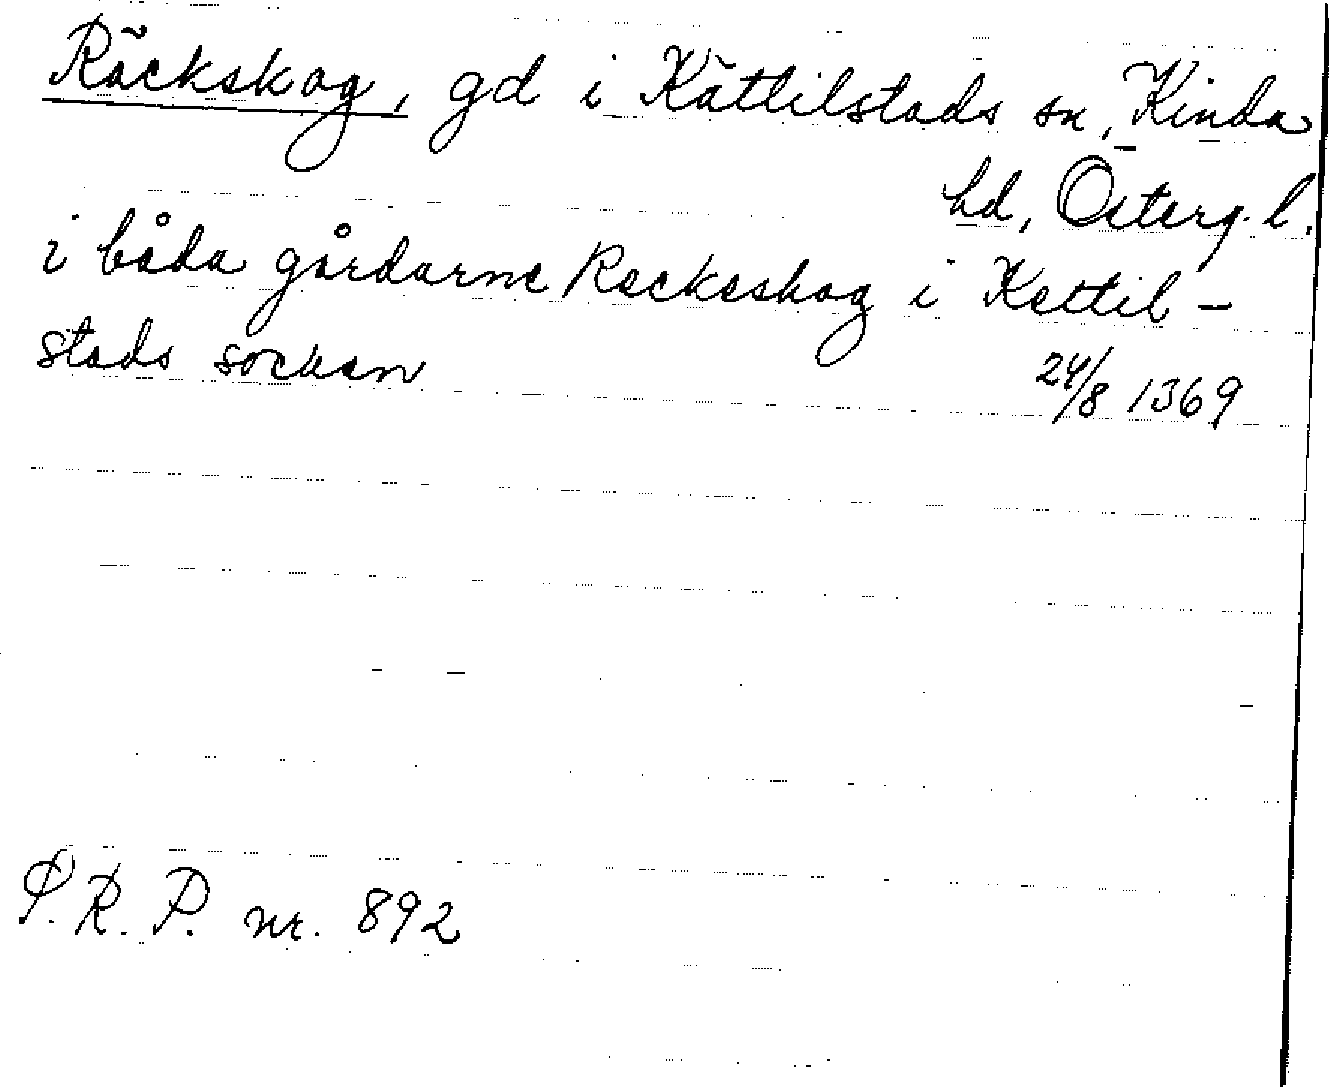 Räckskog, gd i Kättilstads sn, Kinda
hd, Österg. l.
i båda gårdarne Reckeskog i Kettil-
stads socken 24/8 1369
P.R.P. nr. 892